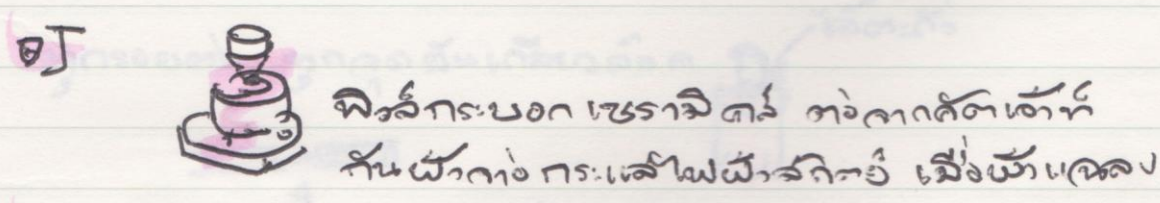 ฟิวส์กระบอกเซรามิคส์ ต่อจากคัตเอ้าท์
กันฟ้าผ่า กระแสไฟฟ้า เมื่อฟ้าแลบลง